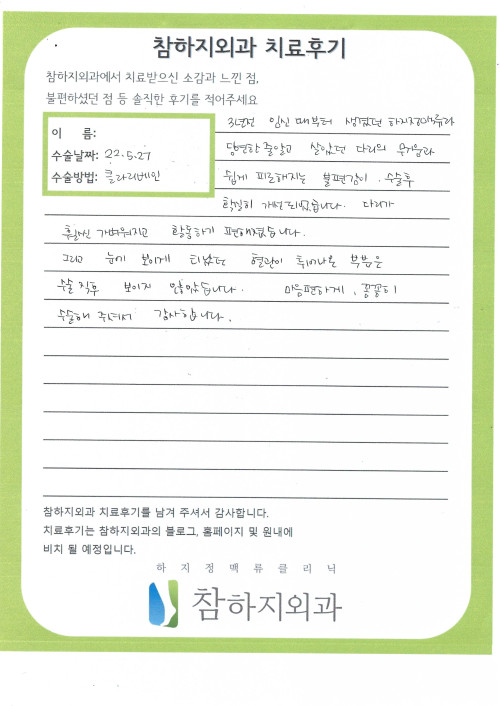 참하지외과 치료후기
참하지외과에서 치료받으신 소감과 느낀 점,
불편하셨던 점 등 솔직한 후기를 적어주세요
이 름:
수술날짜: 22.5.27
수술방법: 클라리베인
3년전 임신 때부터 생겼던 하지정맥류라
당연한 줄알고 살았던 다리의 무거움과
쉽게 피로해지는 불편감이, 수술후
확실히 개선되었습니다. 다리가
훨씬 가벼워지고 활동하기 편해졌습니다.
그리고 눈에 보이게 티났던 혈관이 튀어나온 부분은
수술 직후 보이지 않았습니다. 마음편하게, 꼼꼼히
수술해 주셔서 감사합니다.
참하지외과 치료후기를 남겨 주셔서 감사합니다.
치료후기는 참하지외과의 블로그, 홈페이지 및 원내에
비치 될 예정입니다.
하지정맥류클리닉
참하지외과